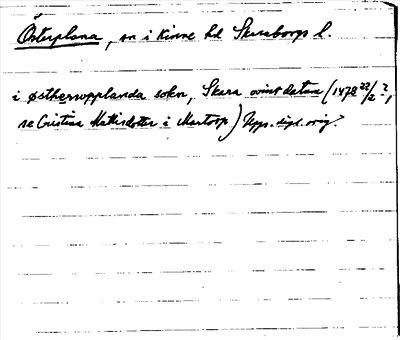 Österplana, sn i Kinne hd Skaraborgs l.
i østherwpplanda sokn, Skara ovisst datum (1478 22/2 ?,
se Cristina Mattisdotter i Martorp) Upps. dipl. orig.